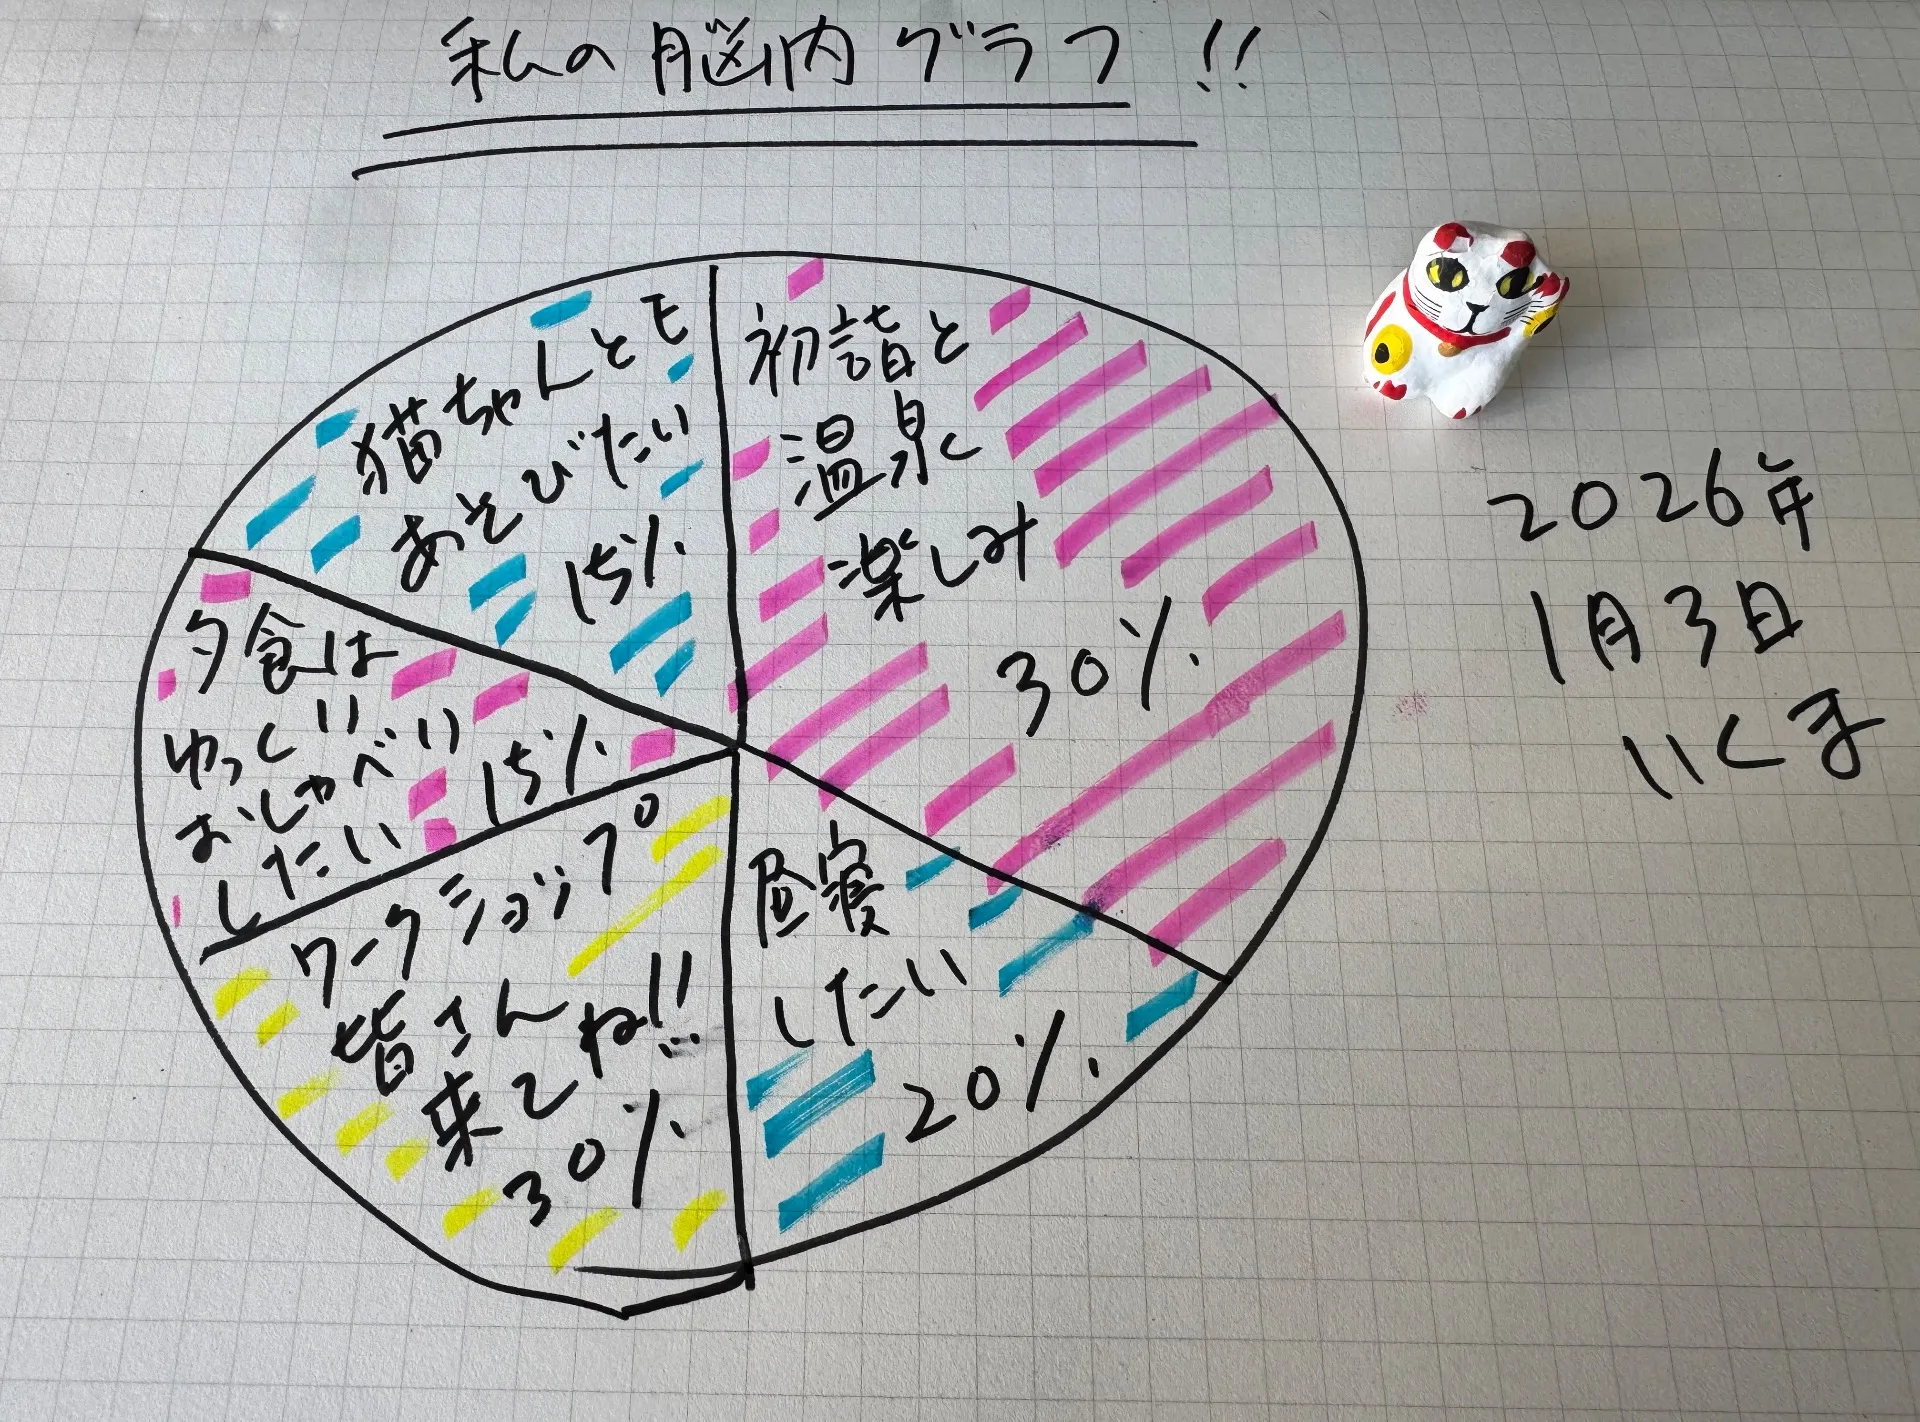 私の脳内グラフ!!
初詣と
温泉く
楽しみ
30%
昼寝
したい
20%
ワークショップ
皆さん
来てね!!
30%
夕食は
ゆっくり
おしゃべり
したい
15%
猫ちゃんとも
あそびたい
15%
2026年
1月3日
いくま